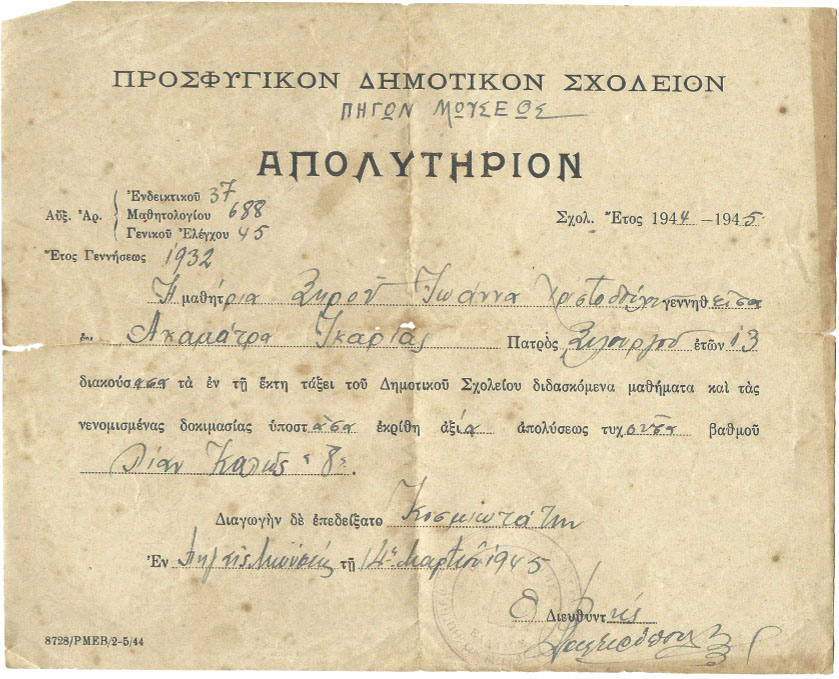 ΠΡΟΣΦΥΓΙΚΟΝ ΔΗΜΟΤΙΚΟΝ ΣΧΟΛΕΙΟΝ
ΠΗΓΩΝ ΜΩΥΣΕΩΣ
ΑΠΟΛΥΤΗΡΙΟΝ
Αὔξ. Ἀρ. Ἐνδεικτικοῦ 37
Μαθητολογίου 688
Γενικοῦ Ἐλέγχου 45
Σχολ. Ἔτος 1944 – 1945
Ἔτος Γεννήσεως 1932
Ἡ μαθήτρια Ἰωάννα γεννηθεῖσα
Ἀκαμάτρα Ἰκαρίας Πατρὸς ἐτῶν 13
διακούσασα τὰ ἐν τῇ ἕκτη τάξει τοῦ Δημοτικοῦ Σχολείου διδασκόμενα μαθήματα καὶ τὰς
νενομισμένας δοκιμασίας ὑποστᾶσα ἐκρίθη ἀξία ἀπολύσεως τυχοῦσα βαθμοῦ
Λίαν Καλῶς "8".
Διαγωγὴν δὲ ἐπεδείξατο Κοσμιωτάτην
Ἐν τῇ 14ῃ Μαρτίου 1945
Ὁ Διευθυντής
8728/PMEB/2-5/44